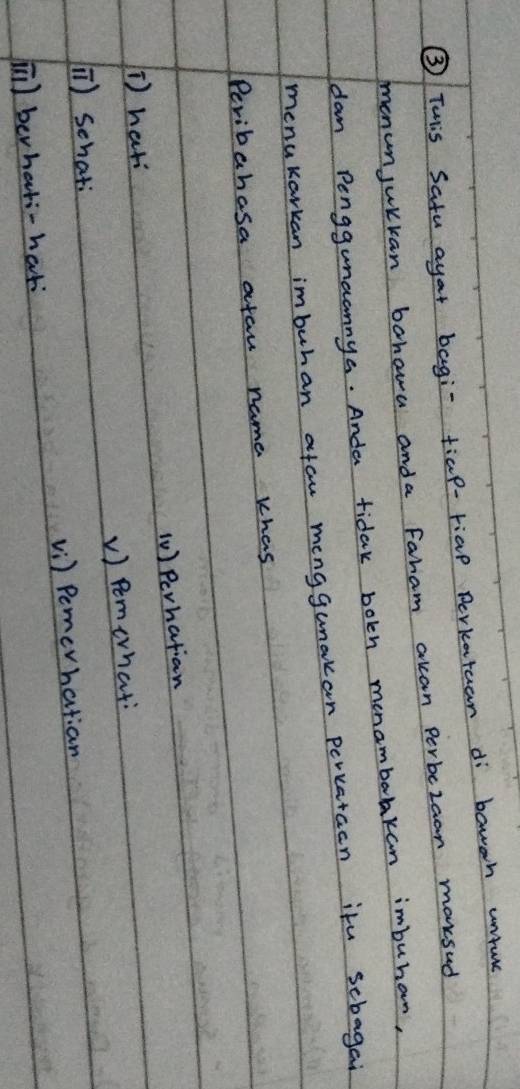 ③ Tulis satu ayat bagi- tiap-tiap perkataan di bawah untuk
menunjukkan bahawa anda faham akan perbezaan maksud
dan penggunaannya. Anda tidak boleh menambahkan imbuhan,
menukarkan imbuhan atau menggunakan perkataan itu sebagai
Peribahasa atau nama khas
i) hati
iv) Perhatian
ii) Sehati
v) Pemerhati
iii) berhati-hati
vi) Pemerhatian